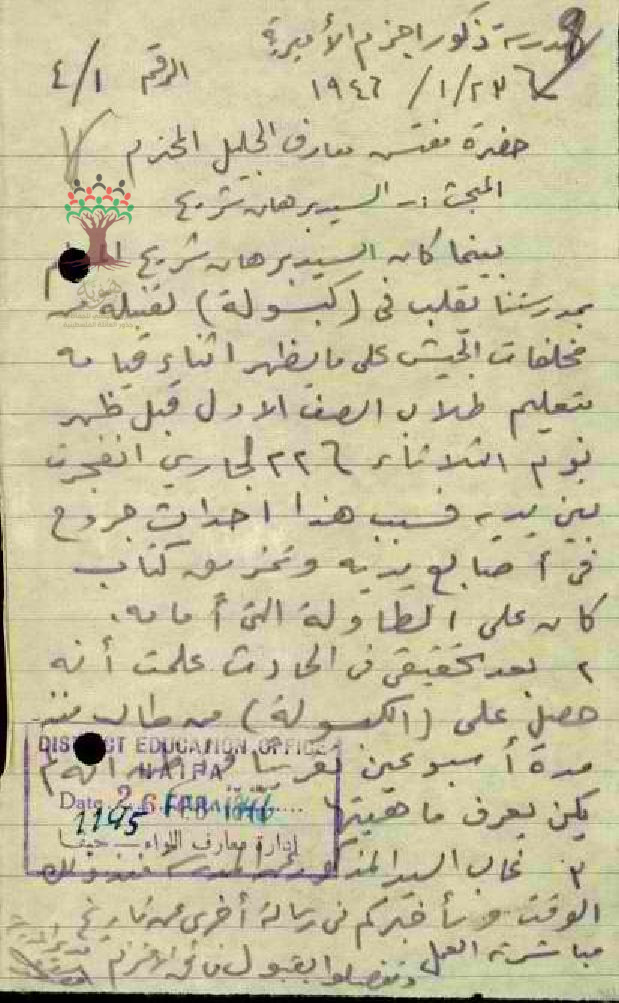 مدرسة ذكور اجزم الأميرية
الرقم ٤/١
٢٣/١/١٩٤٦
حضرة مفتش معارف الجليل المحترم
المبحث :- السيد برهان شريح
بينما كان السيد برهان شريح المعلم
بمدرستنا يقلب في (كبسولة) لقنبلة من
مخلفات الجيش على ما يظهر اثناء قيامه
بتعليم طلاب الصف الاول قبل ظهر
يوم الثلاثاء ٢٢ الجاري انفجرت
بين يديه فسبب هذا احداث جروح
في أصابع يديه وتمزيق كتاب
كان على الطاولة التي أمامه.
٢ بعد تحقيقي في الحادث علمت أنه
حصل على (الكبسولة) من طالب منذ
مدة أسبوعين تقريبا انه لم
يكن يعرف ماهيتها
DISTRICT EDUCATION OFFICE
HAIFA
Date 26 FEB 1946
1195
إدارة معارف اللواء – حيفا
٣ غاب السيد المذكور عن المدرسة منذ ذلك
الوقت وسأخبركم في رسالة أخرى عن تاريخ
مباشرته العمل
وتفضلوا بقبول فائق الاحترام
مدير المدرسة